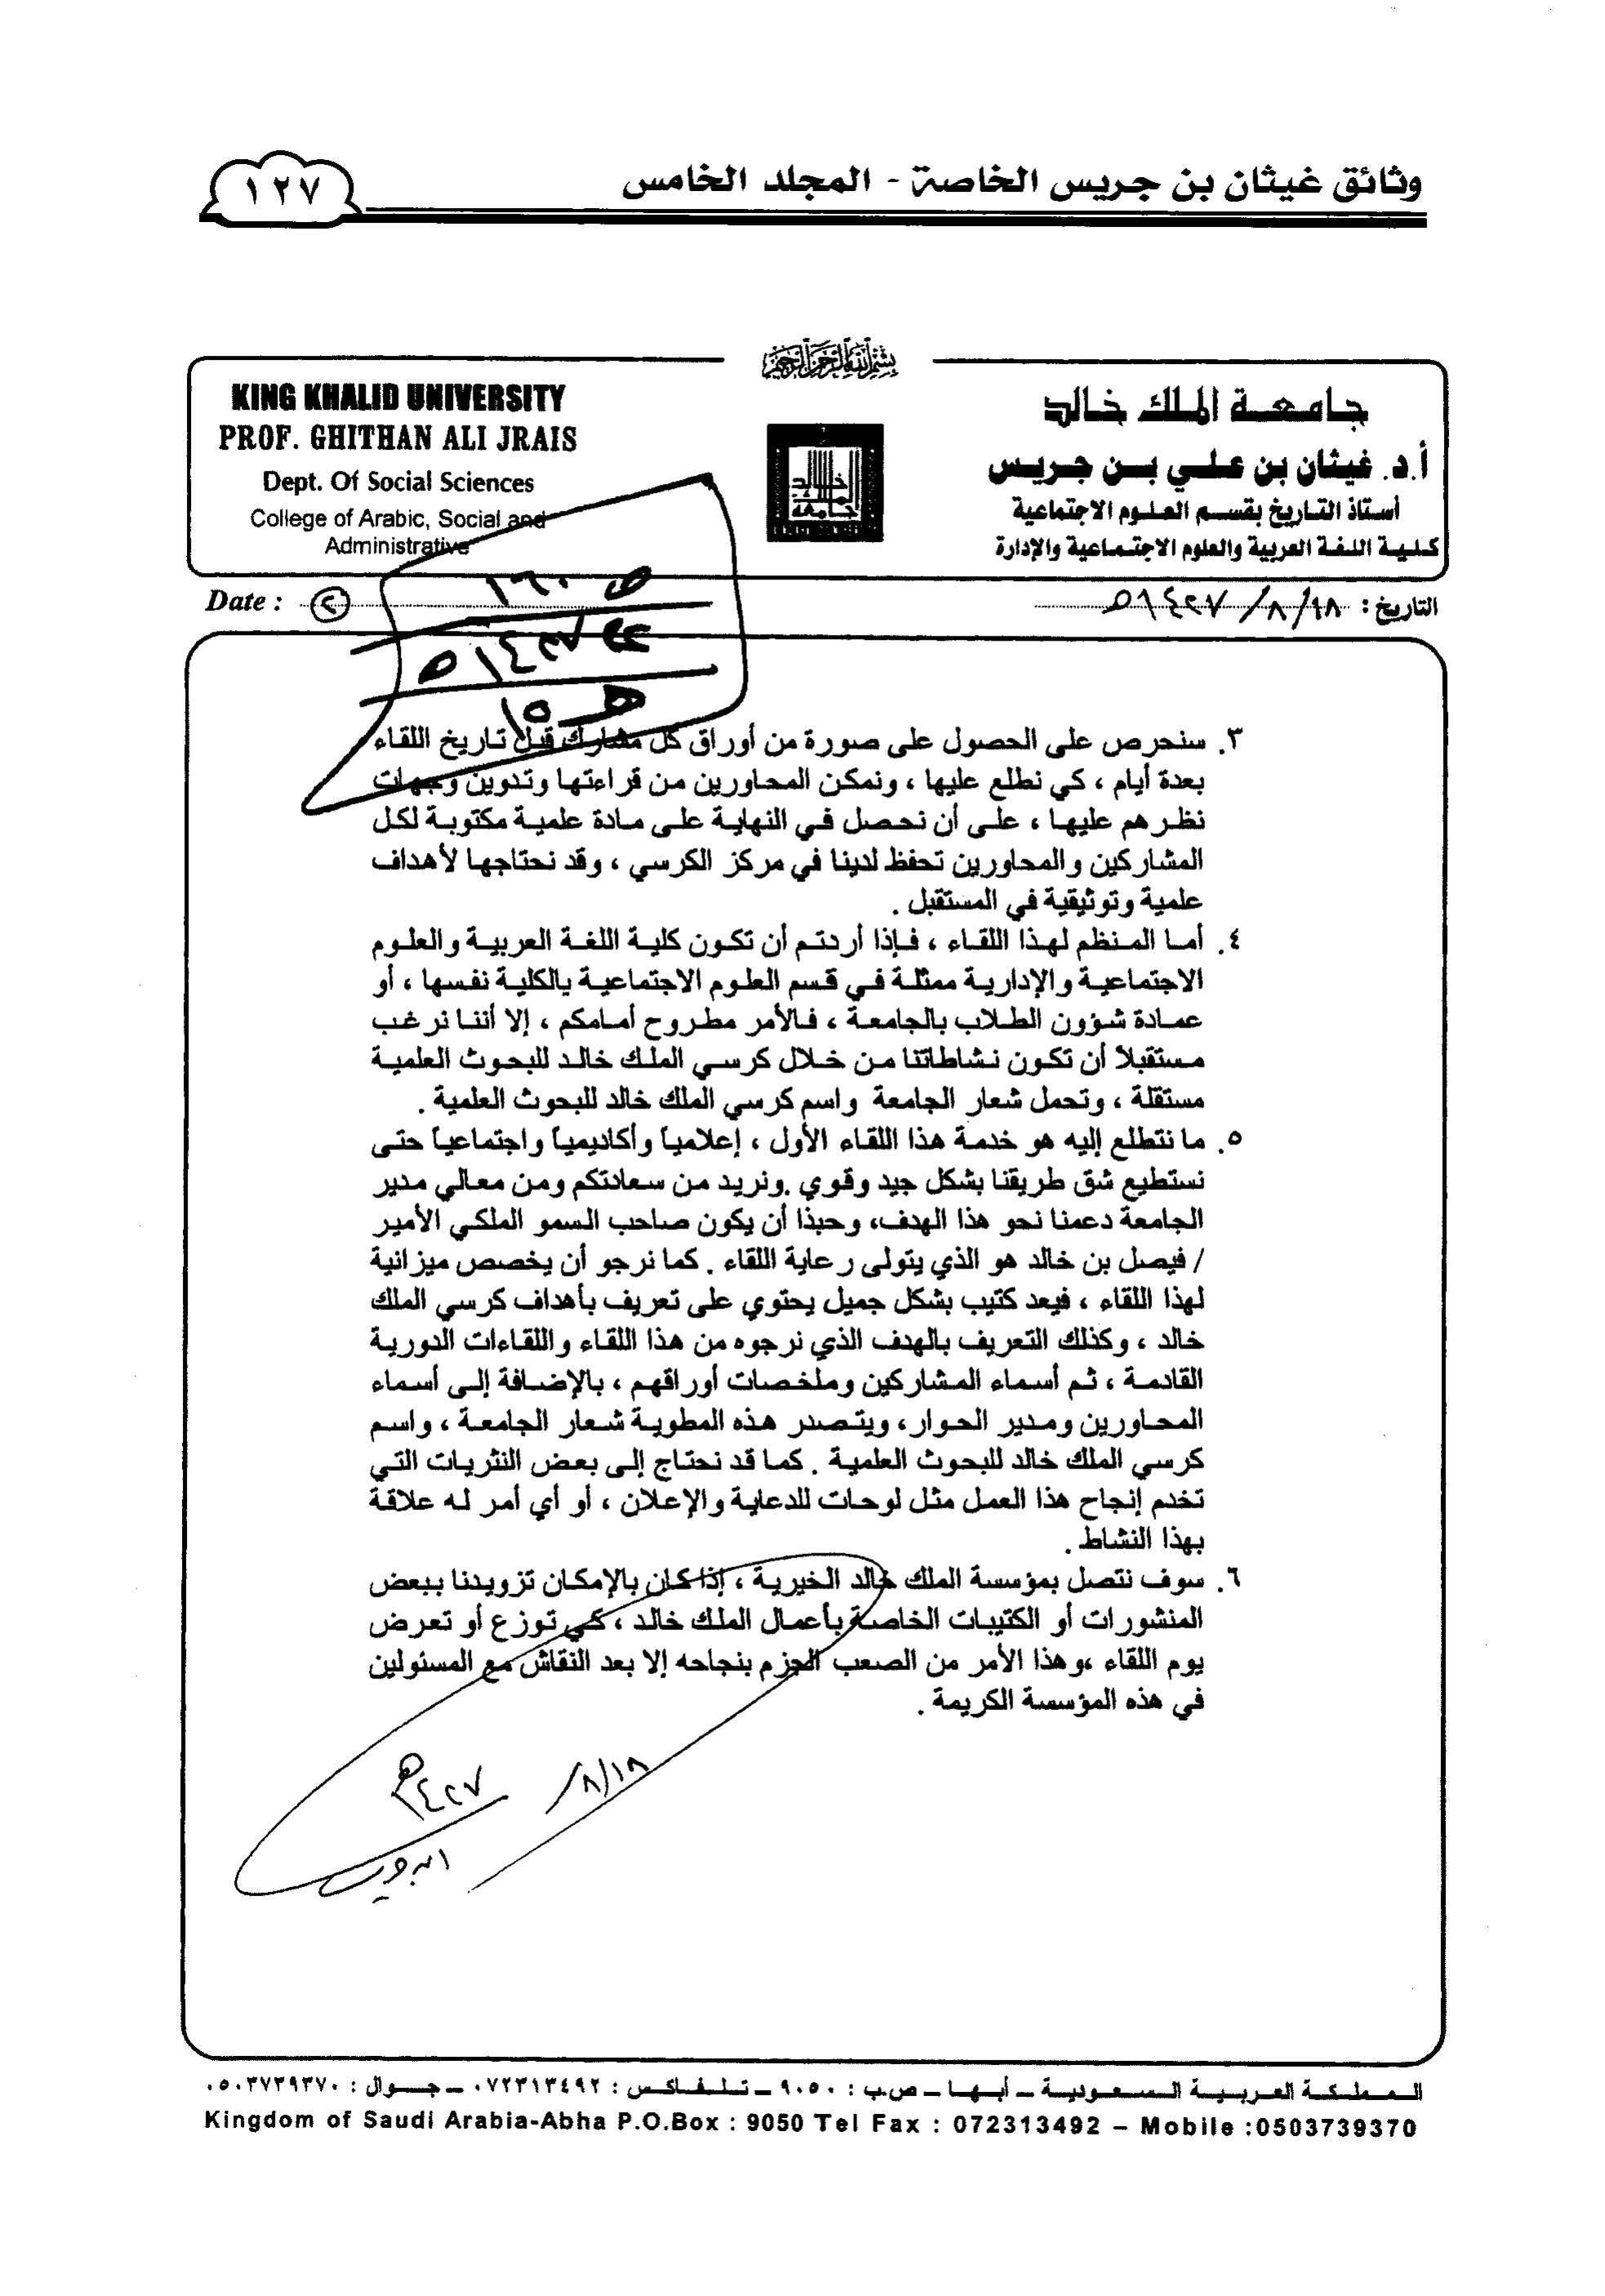 وثائق غيثان بن جريس الخاصة - المجلد الخامس
١٢٧
بسم الله الرحمن الرحيم
جامعة الملك خالد
أ.د. غيثان بن علي بن جريس
أستاذ التاريخ بقسم العلوم الاجتماعية
كلية اللغة العربية والعلوم الاجتماعية والإدارة
KING KHALID UNIVERSITY
PROF. GHITHAN ALI JRAIS
Dept. Of Social Sciences
College of Arabic, Social and
Administrative
التاريخ : ١٨/٨/١٤٢٧ه
Date : ٢
ص ١٦٠
١٤٣٧ه
٣. سنحرص على الحصول على صورة من أوراق كل مشارك قبل تاريخ اللقاء
بعدة أيام ، كي نطلع عليها ، ونمكن المحاورين من قراءتها وتدوين وجهات
نظرهم عليها ، على أن نحصل في النهاية على مادة علمية مكتوبة لكل
المشاركين والمحاورين تحفظ لدينا في مركز الكرسي ، وقد نحتاجها لأهداف
علمية وتوثيقية في المستقبل .
٤. أما المنظم لهذا اللقاء ، فإذا أردتم أن تكون كلية اللغة العربية والعلوم
الاجتماعية والإدارية ممثلة في قسم العلوم الاجتماعية بالكلية نفسها ، أو
عمادة شؤون الطلاب بالجامعة ، فالأمر مطروح أمامكم ، إلا أننا نرغب
مستقبلاً أن تكون نشاطاتنا من خلال كرسي الملك خالد للبحوث العلمية
مستقلة ، وتحمل شعار الجامعة واسم كرسي الملك خالد للبحوث العلمية .
٥. ما نتطلع إليه هو خدمة هذا اللقاء الأول ، إعلامياً وأكاديمياً واجتماعياً حتى
نستطيع شق طريقنا بشكل جيد وقوي .ونريد من سعادتكم ومن معالي مدير
الجامعة دعمنا نحو هذا الهدف، وحبذا أن يكون صاحب السمو الملكي الأمير
/ فيصل بن خالد هو الذي يتولى رعاية اللقاء . كما نرجو أن يخصص ميزانية
لهذا اللقاء ، فيعد كتيب بشكل جميل يحتوي على تعريف بأهداف كرسي الملك
خالد ، وكذلك التعريف بالهدف الذي نرجوه من هذا اللقاء واللقاءات الدورية
القادمة ، ثم أسماء المشاركين وملخصات أوراقهم ، بالإضافة إلى أسماء
المحاورين ومدير الحوار، ويتصدر هذه المطوية شعار الجامعة ، واسم
كرسي الملك خالد للبحوث العلمية . كما قد نحتاج إلى بعض النثريات التي
تخدم إنجاح هذا العمل مثل لوحات للدعاية والإعلان ، أو أي أمر له علاقة
بهذا النشاط .
٦. سوف نتصل بمؤسسة الملك خالد الخيرية ، إذا كان بالإمكان تزويدنا ببعض
المنشورات أو الكتيبات الخاصة بأعمال الملك خالد ، كي توزع أو تعرض
يوم اللقاء ،وهذا الأمر من الصعب الجزم بنجاحه إلا بعد النقاش مع المسئولين
في هذه المؤسسة الكريمة .
١٨/٨/
١٤٢٧ه
المملكة العربية السعودية – أبها – ص.ب : ٩٠٥٠ – تلفاكس : ٠٧٢٣١٣٤٩٢ – جوال : ٠٥٠٣٧٣٩٣٧٠
Kingdom of Saudi Arabia-Abha P.O.Box : 9050 Tel Fax : 072313492 – Mobile :0503739370